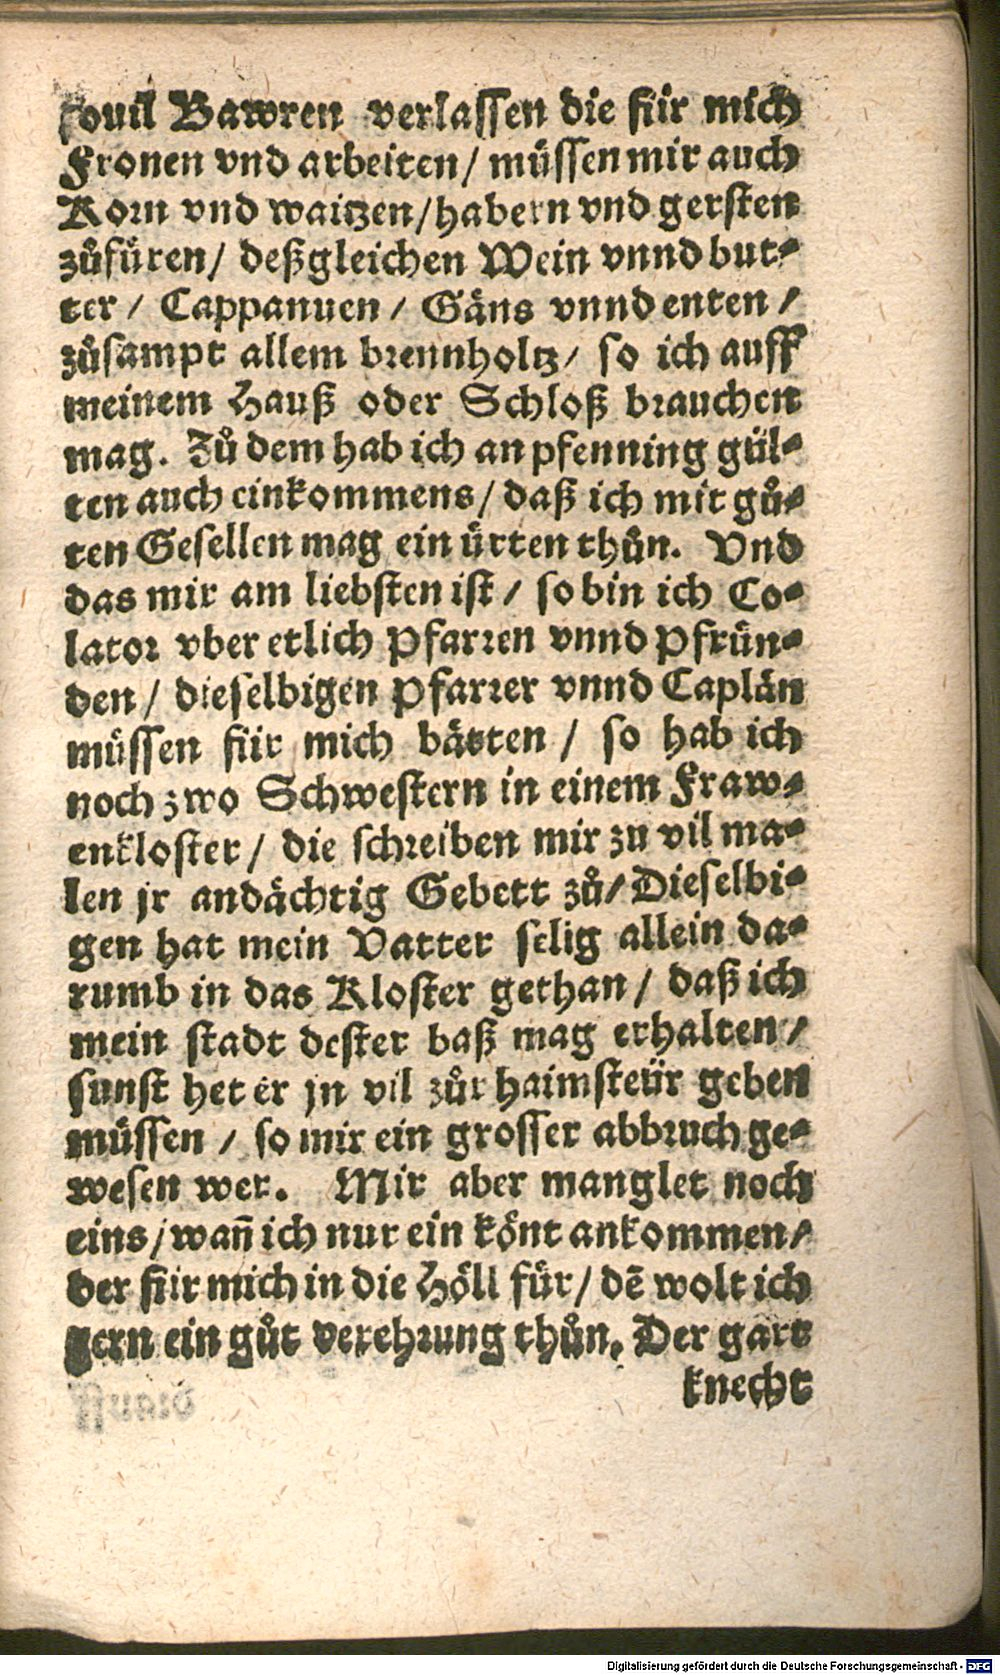 souil Bawren verlassen die für mich
Fronen vnd arbeiten / müssen mir auch
Korn vnd waitzen / habern vnd gersten
zůfüren / deßgleichen Wein vnnd but-
ter / Cappanuen / Gäns vnnd enten /
zůsampt allem brennholtz / so ich auff
meinem Hauß oder Schloß brauchen
mag. Zů dem hab ich an pfenning gül-
ten auch einkommens / daß ich mit gů-
ten Gesellen mag ein ürten thůn. Vnd
das mir am liebsten ist / so bin ich Co-
lator vber etlich Pfarren vnnd Pfrün-
den / dieselbigen Pfarrer vnnd Caplän
müssen für mich bätten / so hab ich
noch zwo Schwestern in einem Fraw-
enkloster / die schreiben mir zu vil ma-
len jr andächtig Gebett zů / Dieselbi-
gen hat mein Vatter selig allein da-
rumb in das Kloster gethan / daß ich
mein stadt dester baß mag erhalten /
sunst het er jn vil zůr haimsteür geben
müssen / so mir ein grosser abbruch ge-
wesen wer. Mir aber manglet noch
eins / wañ ich nur ein könt ankommen /
der für mich in die Höll für / dē wolt ich
gern ein gůt verehrung thůn. Der gart
knecht
Digitalisierung gefördert durch die Deutsche Forschungsgemeinschaft - DFG